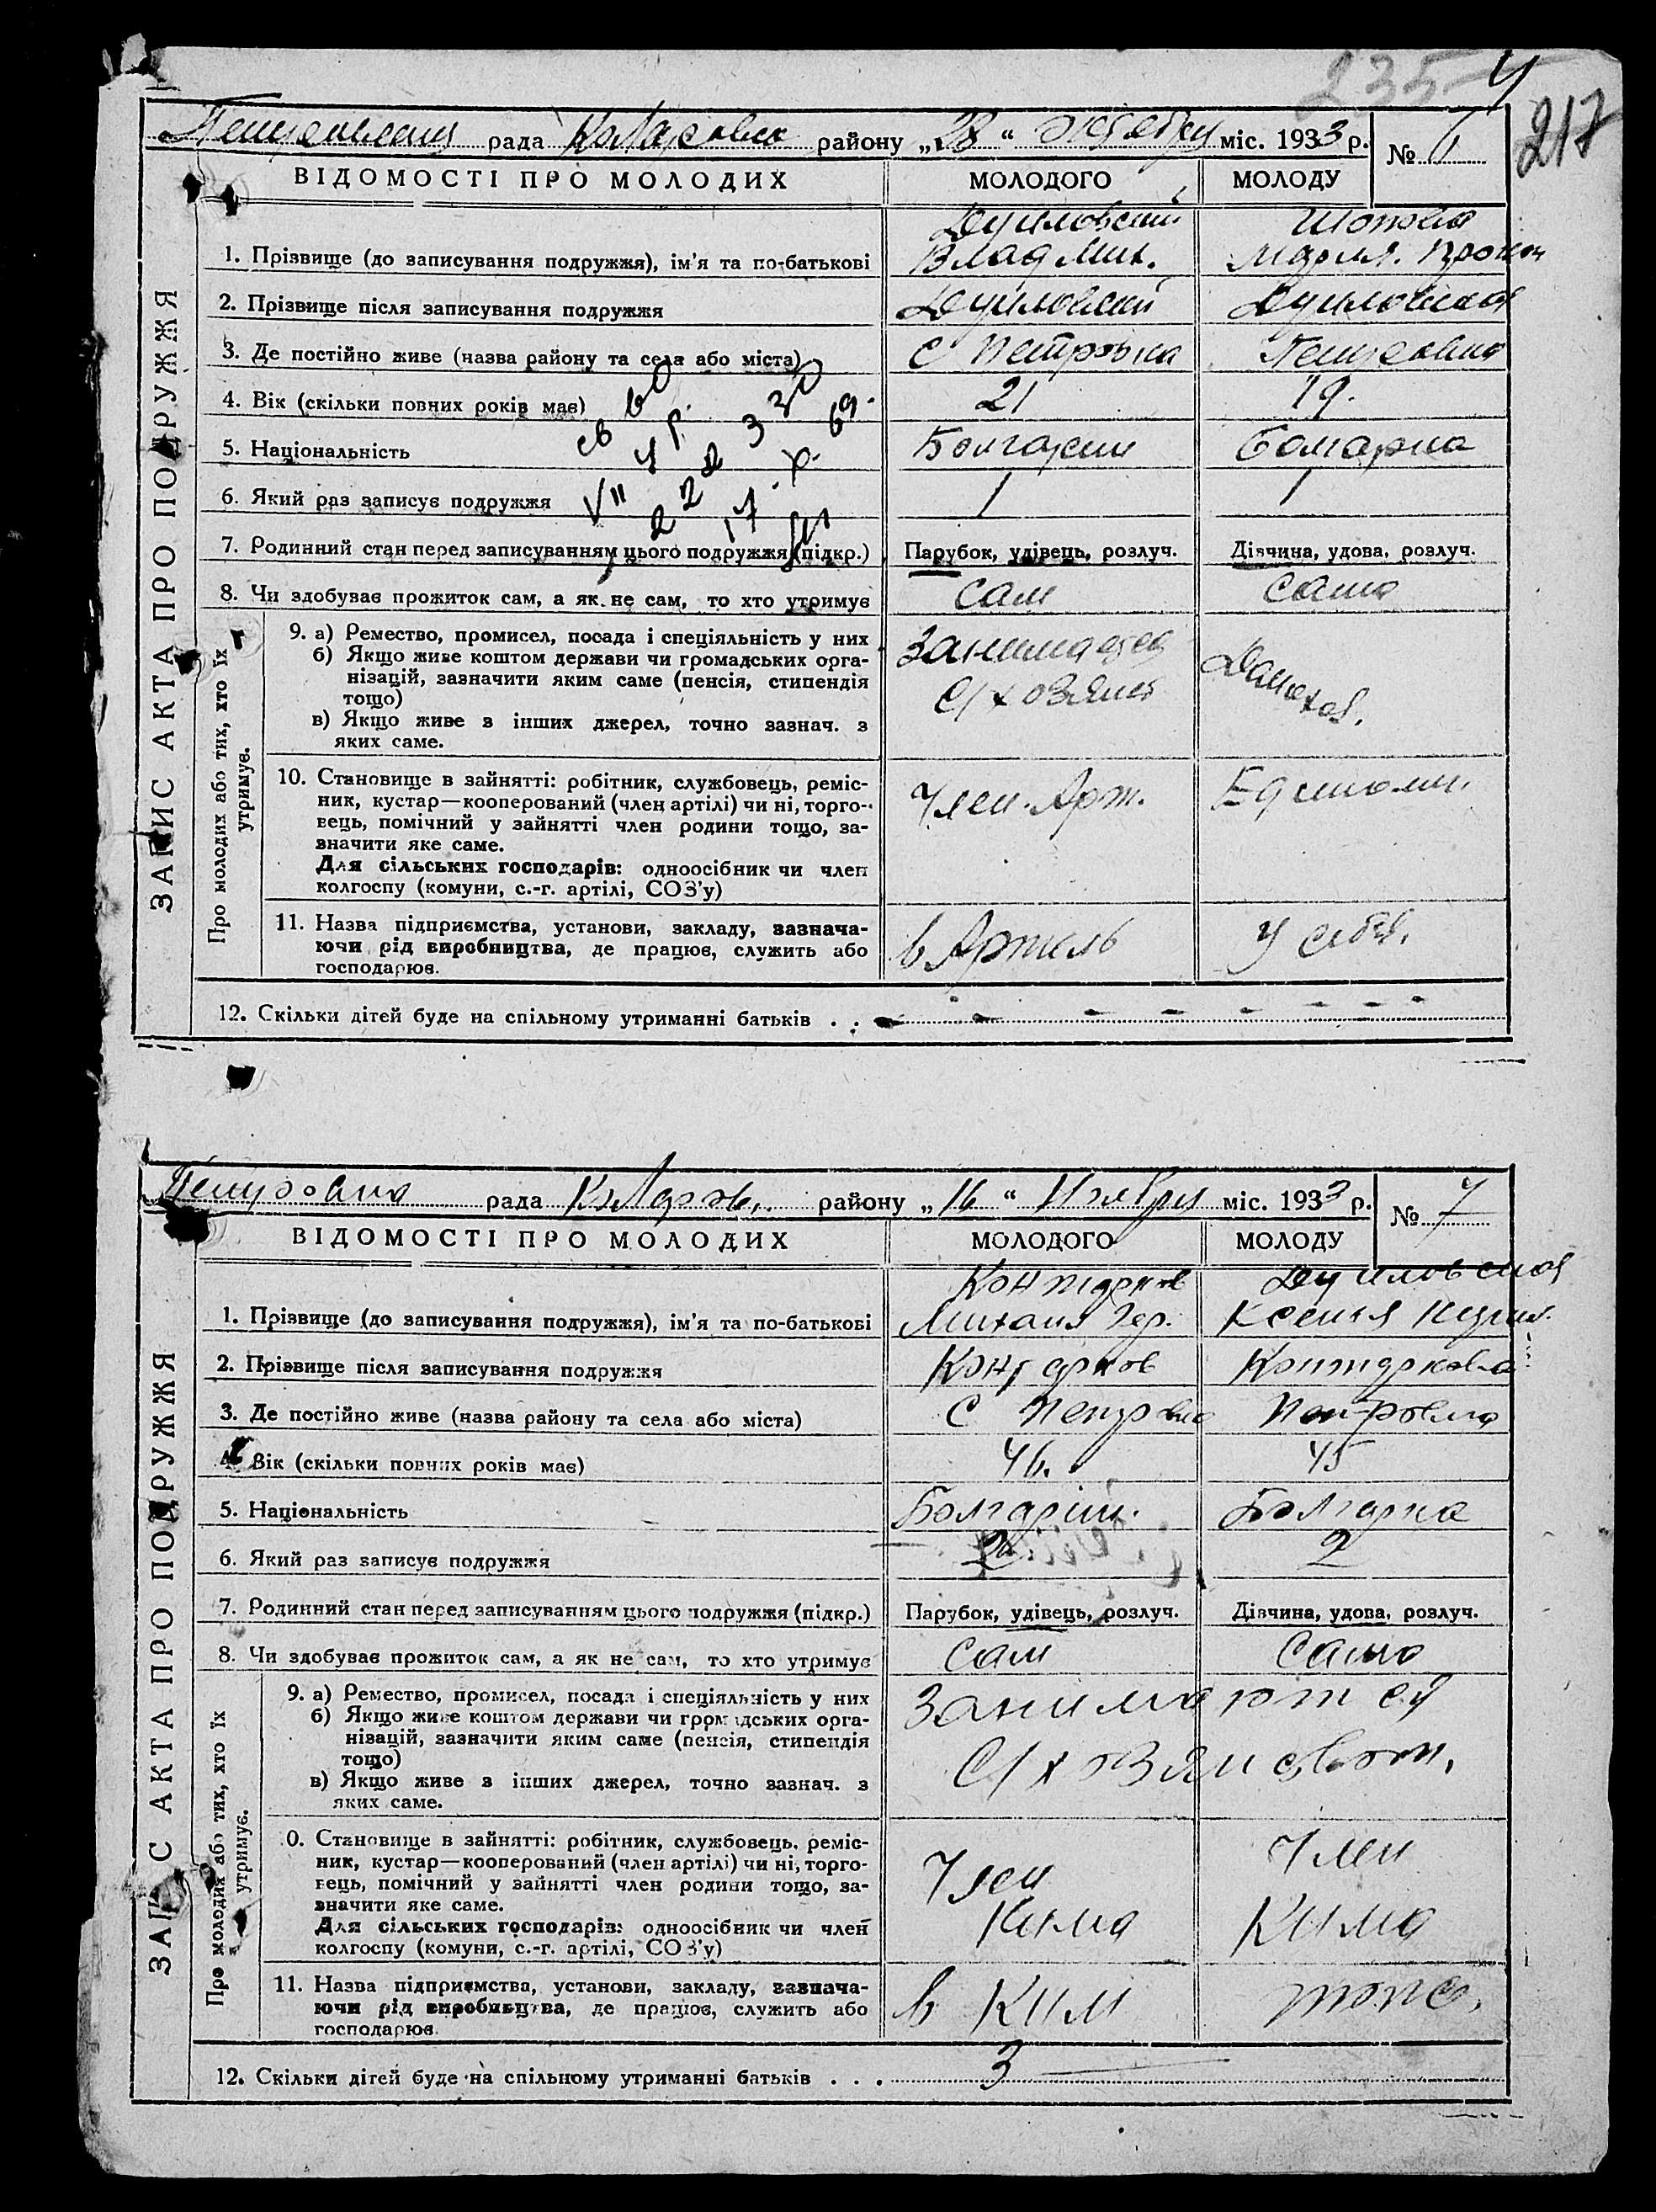 235
217
рада району „28“ Октября міс. 1933 р. №
ВІДОМОСТІ ПРО МОЛОДИХ МОЛОДОГО МОЛОДУ
ЗАПИС АКТА ПРО ПОДРУЖЖЯ
1. Прізвище (до записування подружжя), ім'я та по-батькові Влад Мих. Мария.
2. Прізвище після записування подружжя
3. Де постійно живе (назва району та села або міста) с Петровка Петровка
4. Вік (скільки повних років має) 21 19.
5. Національність Болгарин Болгарка
6. Який раз записує подружжя 1 1
7. Родинний стан перед записуванням цього подружжя (підкр.) Парубок, удівець, розлуч. Дівчина, удова, розлуч.
8. Чи здобуває прожиток сам, а як не сам, то хто утримує сам сама
Про молодих або тих, хто їх утримує.
9. а) Ремество, промисел, посада і спеціяльність у них
б) Якщо живе коштом держави чи громадських орга-
нізацій, зазначити яким саме (пенсія, стипендія
тощо)
в) Якщо живе з інших джерел, точно зазнач. з
яких саме.
Домохоз.
10. Становище в зайнятті: робітник, службовець, реміс-
ник, кустар—кооперований (член артілі) чи ні, торго-
вець, помічний у зайнятті член родини тощо, за-
значити яке саме.
Для сільських господарів: одноосібник чи член
колгоспу (комуни, с.-г. артілі, СОЗ'у)
Член. Арт. Единолич.
11. Назва підприємства, установи, закладу, зазнача-
ючи рід виробництва, де працює, служить або
господарює.
в Артель у себя.
12. Скільки дітей буде на спільному утриманні батьків . . .
Петровка рада района району „16“ Ноября міс. 1933 р. № 7
ВІДОМОСТІ ПРО МОЛОДИХ МОЛОДОГО МОЛОДУ
ЗАПИС АКТА ПРО ПОДРУЖЖЯ
Контарков
1. Прізвище (до записування подружжя), ім'я та по-батькові Михаил Ксенья
2. Прізвище після записування подружжя Контарков Контаркова
3. Де постійно живе (назва району та села або міста) с Петровка Петровка
4. Вік (скільки повних років має) 46. 45
5. Національність Болгарин. Болгарка
6. Який раз записує подружжя 2. 2
7. Родинний стан перед записуванням цього подружжя (підкр.) Парубок, удівець, розлуч. Дівчина, удова, розлуч.
8. Чи здобуває прожиток сам, а як не сам, то хто утримує сам сама
Про молодих або тих, хто їх утримує.
9. а) Ремество, промисел, посада і спеціяльність у них
б) Якщо живе коштом держави чи громадських орга-
нізацій, зазначити яким саме (пенсія, стипендія
тощо)
в) Якщо живе з інших джерел, точно зазнач. з
яких саме.
Занимаются
С/хозяйством.
0. Становище в зайнятті: робітник, службовець, реміс-
ник, кустар—кооперований (член артілі) чи ні, торго-
вець, помічний у зайнятті член родини тощо, за-
значити яке саме.
Для сільських господарів: одноосібник чи член
колгоспу (комуни, с.-г. артілі, СОЗ'у)
Член Кима
Член Кима
11. Назва підприємства, установи, закладу, зазнача-
ючи рід виробництва, де працює, служить або
господарює.
в Ким тоже.
12. Скільки дітей буде на спільному утриманні батьків . . . 3